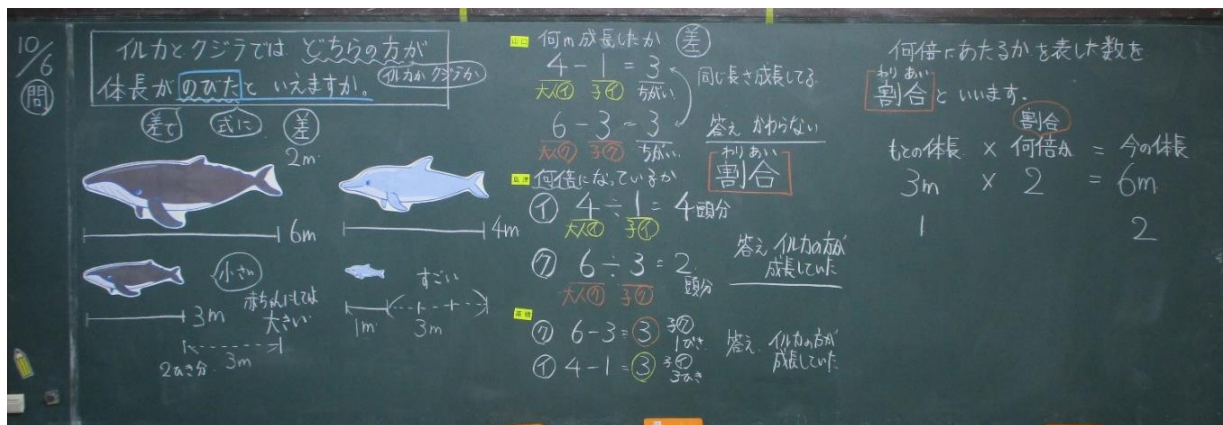 10/6
問
イルカとクジラでは どちらの方が
イルカか クジラか
体長が のびたと いえますか。
差で 式に 差
2m
6m
4m
小さい
赤ちゃんにしては
大きい
3m
3m
2ひき分
すごい
1m 3m
山口 何m成長したか 差
4-1=3
大人イ 子イ ちがい
同じ長さ成長してる
6-3=3
大人ク 子ク ちがい
答え かわらない
わりあい
割合
何倍になっているか
イ 4÷1=4頭分
大人イ 子イ
ク 6÷3=2頭分
大人ク 子ク
答え イルカの方が
成長していた
高橋
ク 6-3=3 子ク 1ぴき
イ 4-1=3 子イ 3びき
答え イルカの方が
成長していた
何倍にあたるかを表した数を
わりあい
割合 といいます。
割合
もとの体長 × 何倍か = 今の体長
3m × 2 = 6m
1 2